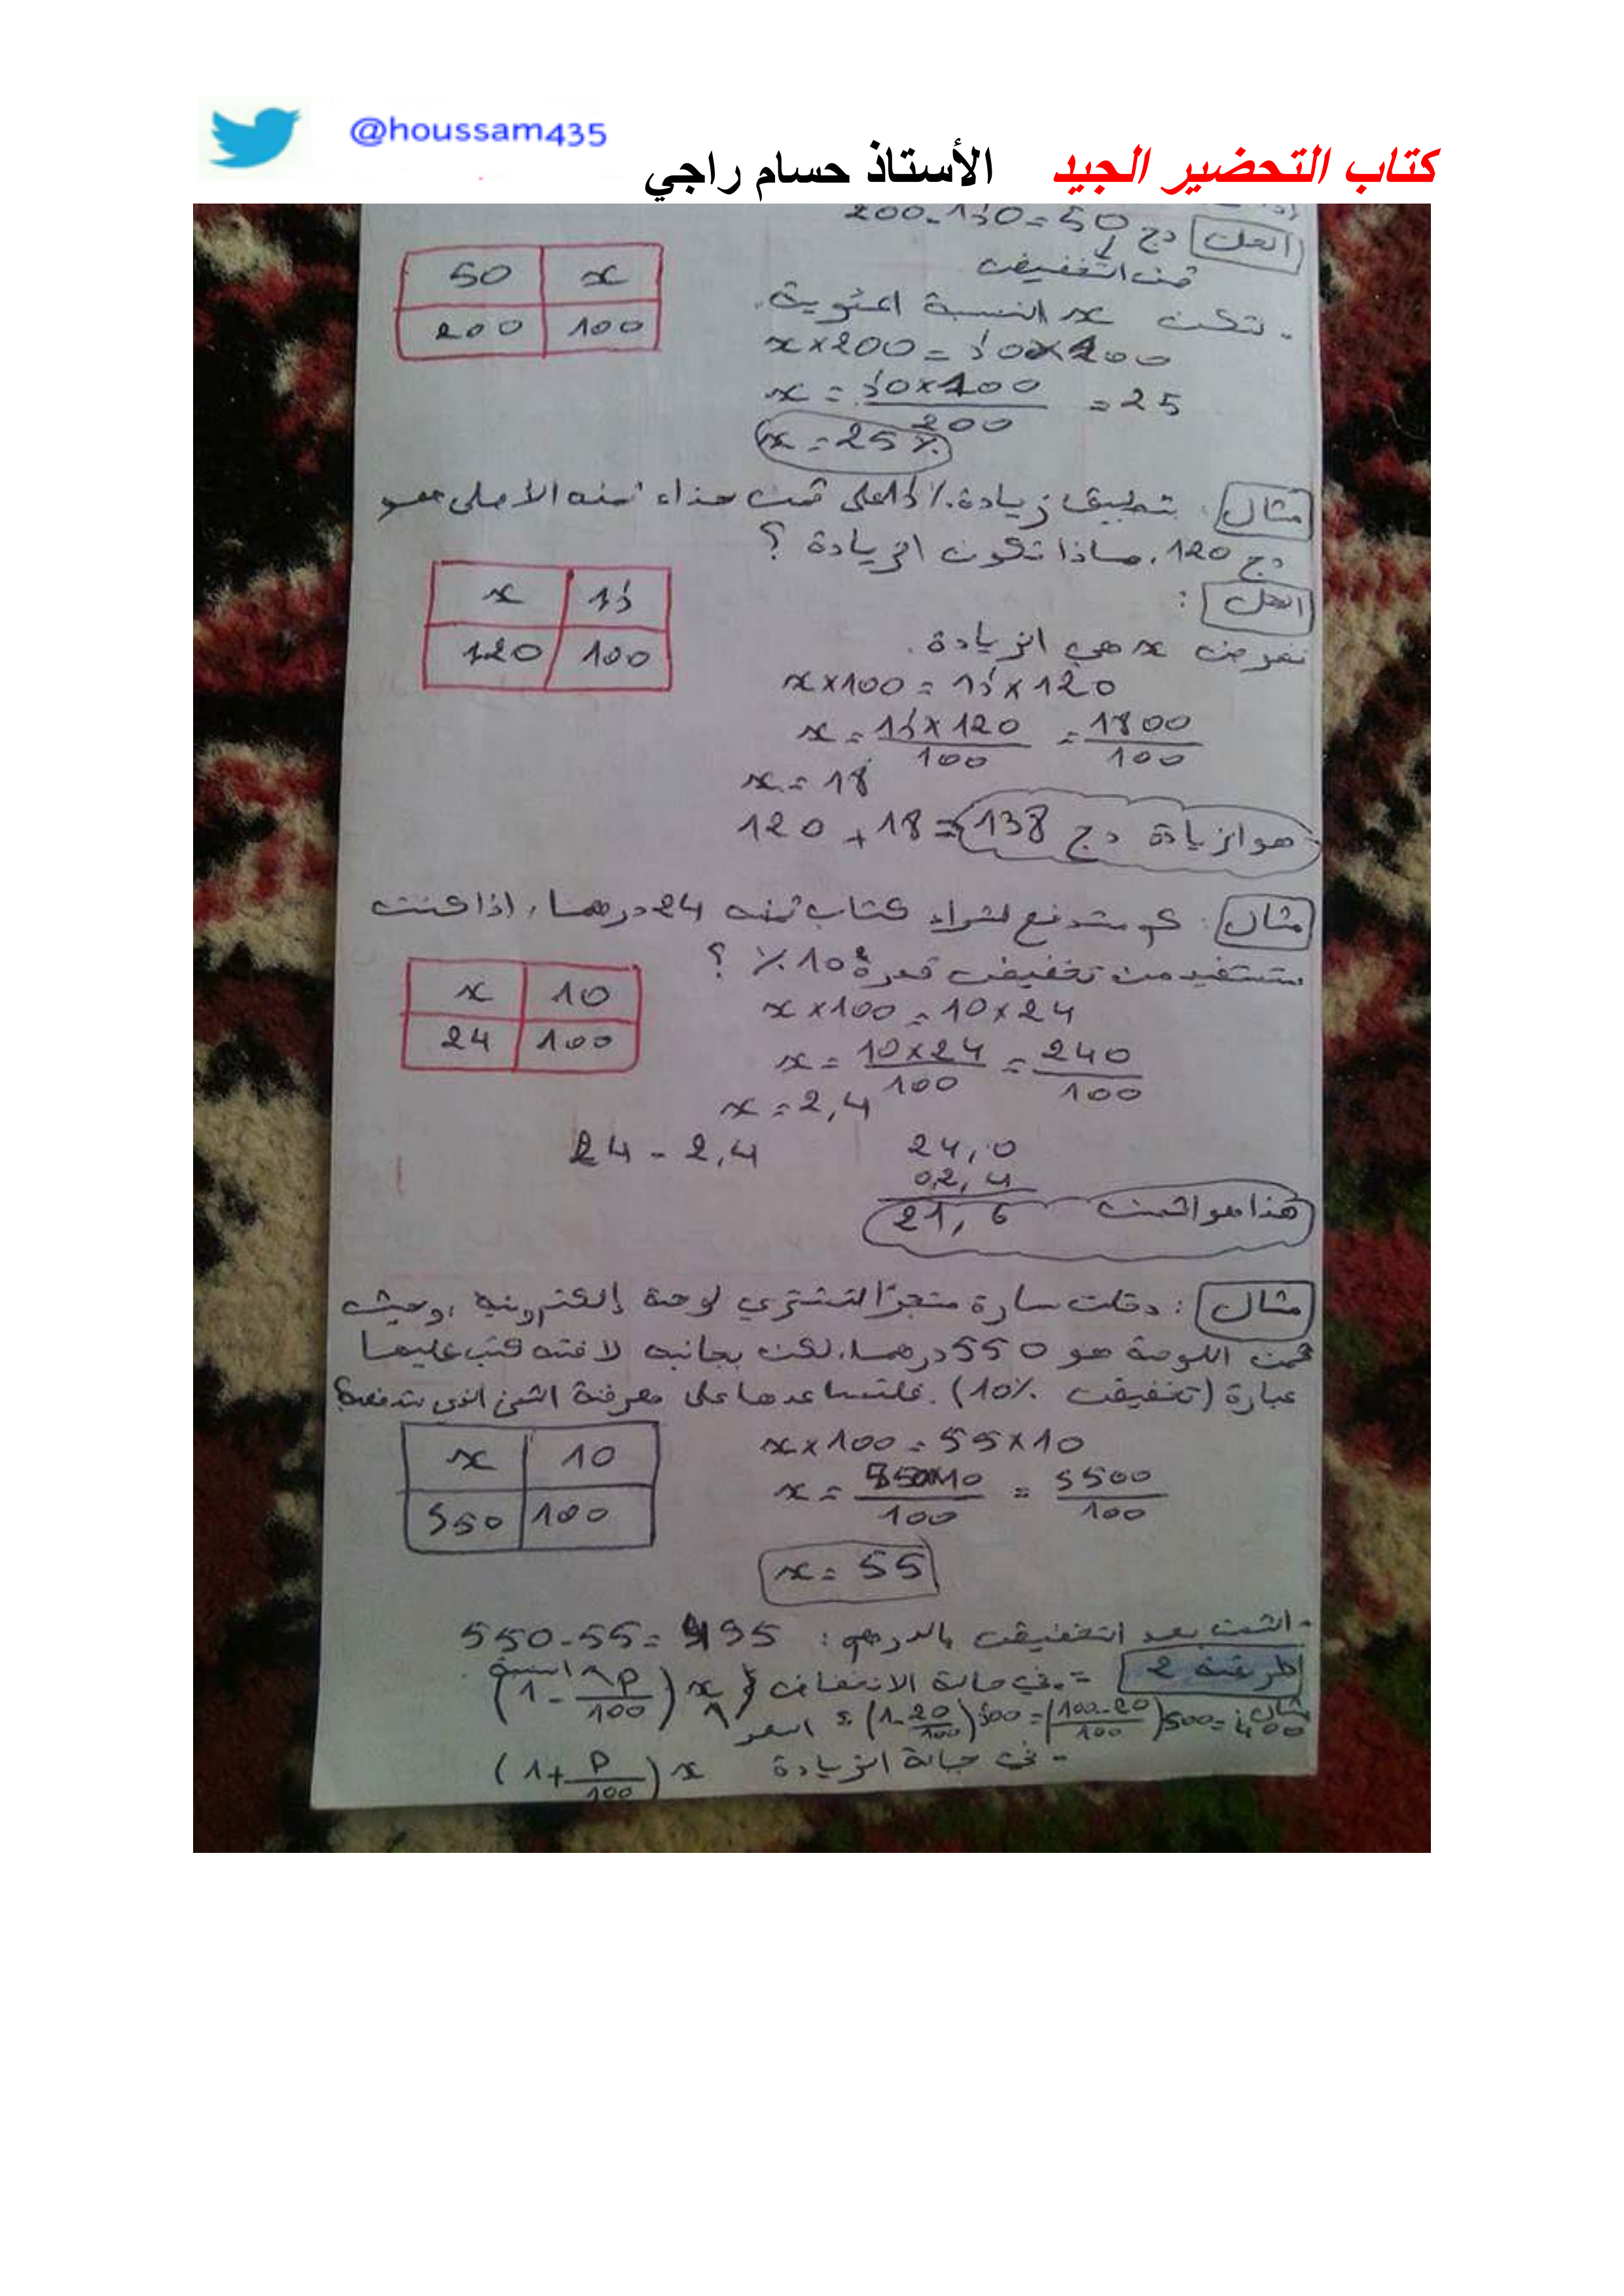 @houssam435
كتاب التحضير الجيد الأستاذ حسام راجي
الحل دج 200-150=50
ثمن التخفيض
50 x
200 100
- لتكن x النسبة المئوية.
x×200 = 50×100
x = 50×100/200 = 25
x = 25%
مثال : تطبيق زيادة 15% على ثمن حذاء ثمنه الأصلي هو
120 دج. ماذا تكون الزيادة ؟
x 15
120 100
الحل :
نفرض x هي الزيادة.
x×100 = 15×120
x = 15×120/100 = 1800/100
x = 18
120 + 18 = 138 دج هو الزيادة
مثال : كم ستدفع لشراء كتاب ثمنه 24 درهما، اذا كنت
ستستفيد من تخفيض قدره 10% ؟
x 10
24 100
x×100 = 10×24
x = 10×24/100 = 240/100
x = 2,4
24 - 2,4
24,0
02,4
21,6 هذا هو الثمن
مثال : دخلت سارة متجرًا لتشتري لوحة إلكترونية، وحيث
ثمن اللوحة هو 550 درهما، لكن بجانبه لافتة كتب عليها
عبارة (تخفيض 10%). فلتساعدها على معرفة الثمن الذي ستدفعه؟
x 10
550 100
x×100 = 55×10
x = 550×10/100 = 5500/100
x = 55
- الثمن بعد التخفيض بالدرهم: 550-55=495
طريقة 2 = في حالة الانخفاض x(1-P/100) النسبة
السعر
مثال: (1-20/100)500=(100-20/100)500=400
- في حالة الزيادة x(1+P/100)